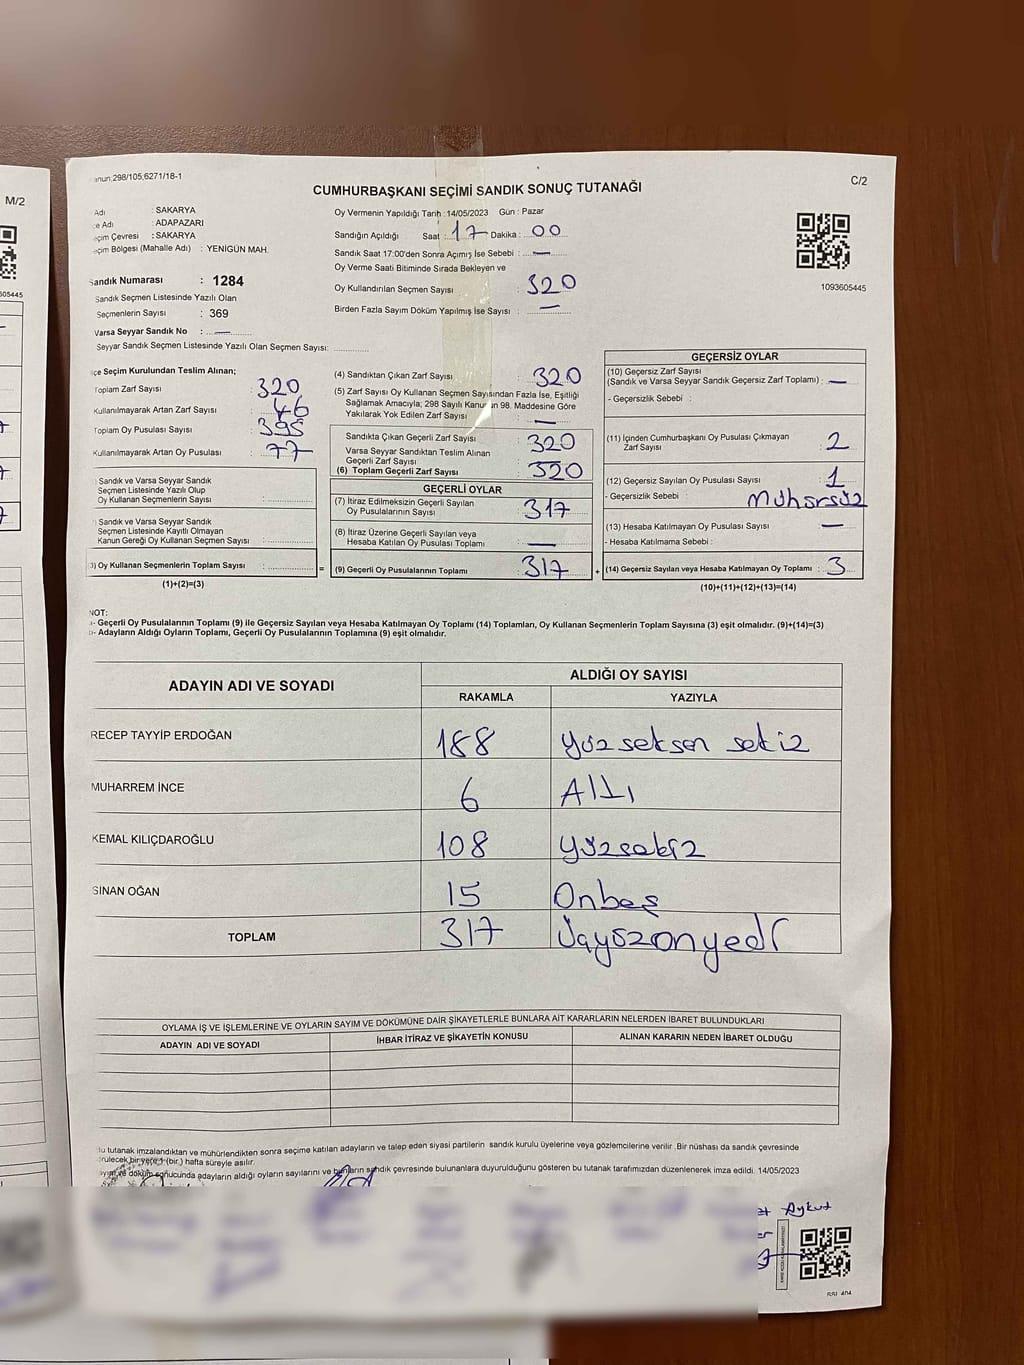 M/2
605445
anun;298/105,6271/18-1
C/2
CUMHURBAŞKANI SEÇİMİ SANDIK SONUÇ TUTANAĞI
Adı : SAKARYA
e Adı : ADAPAZARI
çim Çevresi : SAKARYA
çim Bölgesi (Mahalle Adı) : YENİGÜN MAH.
Sandık Numarası : 1284
Sandık Seçmen Listesinde Yazılı Olan
Seçmenlerin Sayısı : 369
Varsa Seyyar Sandık No : —
Seyyar Sandık Seçmen Listesinde Yazılı Olan Seçmen Sayısı:
Oy Vermenin Yapıldığı Tarih : 14/05/2023 Gün : Pazar
Sandığın Açıldığı Saat : 17 Dakika : 00
Sandık Saat 17:00'den Sonra Açımış İse Sebebi : —
Oy Verme Saati Bitiminde Sırada Bekleyen ve
Oy Kullandırılan Seçmen Sayısı : 320
Birden Fazla Sayım Döküm Yapılmış İse Sayısı : —
1093605445
çe Seçim Kurulundan Teslim Alınan;
Toplam Zarf Sayısı : 320
Kullanılmayarak Artan Zarf Sayısı : 46
Toplam Oy Pusulası Sayısı : 395
Kullanılmayarak Artan Oy Pusulası : 77
Sandık ve Varsa Seyyar Sandık
Seçmen Listesinde Yazılı Olup
Oy Kullanan Seçmenlerin Sayısı :
Sandık ve Varsa Seyyar Sandık
Seçmen Listesinde Kayıtlı Olmayan
Kanun Gereği Oy Kullanan Seçmen Sayısı :
3) Oy Kullanan Seçmenlerin Toplam Sayısı : =
(1)+(2)=(3)
(4) Sandıktan Çıkan Zarf Sayısı : 320
(5) Zarf Sayısı Oy Kullanan Seçmen Sayısından Fazla İse, Eşitliği
Sağlamak Amacıyla; 298 Sayılı Kanunun 98. Maddesine Göre
Yakılarak Yok Edilen Zarf Sayısı : —
Sandıkta Çıkan Geçerli Zarf Sayısı : 320
Varsa Seyyar Sandıktan Teslim Alınan
Geçerli Zarf Sayısı : —
(6) Toplam Geçerli Zarf Sayısı : 320
GEÇERLİ OYLAR
(7) İtiraz Edilmeksizin Geçerli Sayılan
Oy Pusulalarının Sayısı : 317
(8) İtiraz Üzerine Geçerli Sayılan veya
Hesaba Katılan Oy Pusulası Toplamı : —
(9) Geçerli Oy Pusulalarının Toplamı : 317 +
GEÇERSİZ OYLAR
(10) Geçersiz Zarf Sayısı
(Sandık ve Varsa Seyyar Sandık Geçersiz Zarf Toplamı) : —
- Geçersizlik Sebebi :
(11) İçinden Cumhurbaşkanı Oy Pusulası Çıkmayan
Zarf Sayısı : 2
(12) Geçersiz Sayılan Oy Pusulası Sayısı : 1
- Geçersizlik Sebebi : Mühürsüz
(13) Hesaba Katılmayan Oy Pusulası Sayısı : —
- Hesaba Katılmama Sebebi :
(14) Geçersiz Sayılan veya Hesaba Katılmayan Oy Toplamı : 3
(10)+(11)+(12)+(13)=(14)
NOT:
a- Geçerli Oy Pusulalarının Toplamı (9) ile Geçersiz Sayılan veya Hesaba Katılmayan Oy Toplamı (14) Toplamları, Oy Kullanan Seçmenlerin Toplam Sayısına (3) eşit olmalıdır. (9)+(14)=(3)
b- Adayların Aldığı Oyların Toplamı, Geçerli Oy Pusulalarının Toplamına (9) eşit olmalıdır.
ADAYIN ADI VE SOYADI
ALDIĞI OY SAYISI
RAKAMLA YAZIYLA
RECEP TAYYİP ERDOĞAN 188 Yüz seksen sekiz
MUHARREM İNCE 6 Altı
KEMAL KILIÇDAROĞLU 108 Yüzsekiz
SİNAN OĞAN 15 Onbeş
TOPLAM 317 Üçyüzonyedi
OYLAMA İŞ VE İŞLEMLERİNE VE OYLARIN SAYIM VE DÖKÜMÜNE DAİR ŞİKAYETLERLE BUNLARA AİT KARARLARIN NELERDEN İBARET BULUNDUKLARI
ADAYIN ADI VE SOYADI İHBAR İTİRAZ VE ŞİKAYETİN KONUSU ALINAN KARARIN NEDEN İBARET OLDUĞU
u tutanak imzalandıktan ve mühürlendikten sonra seçime katılan adayların ve talep eden siyasi partilerin sandık kurulu üyelerine veya gözlemcilerine verilir. Bir nüshası da sandık çevresinde
rülecek bir yere 1 (bir) hafta süreyle asılır.
ayım ve döküm sonucunda adayların aldığı oyların sayılarını ve bunların sandık çevresinde bulunanlara duyurulduğunu gösteren bu tutanak tarafımızdan düzenlenerek imza edildi. 14/05/2023
et Aykut